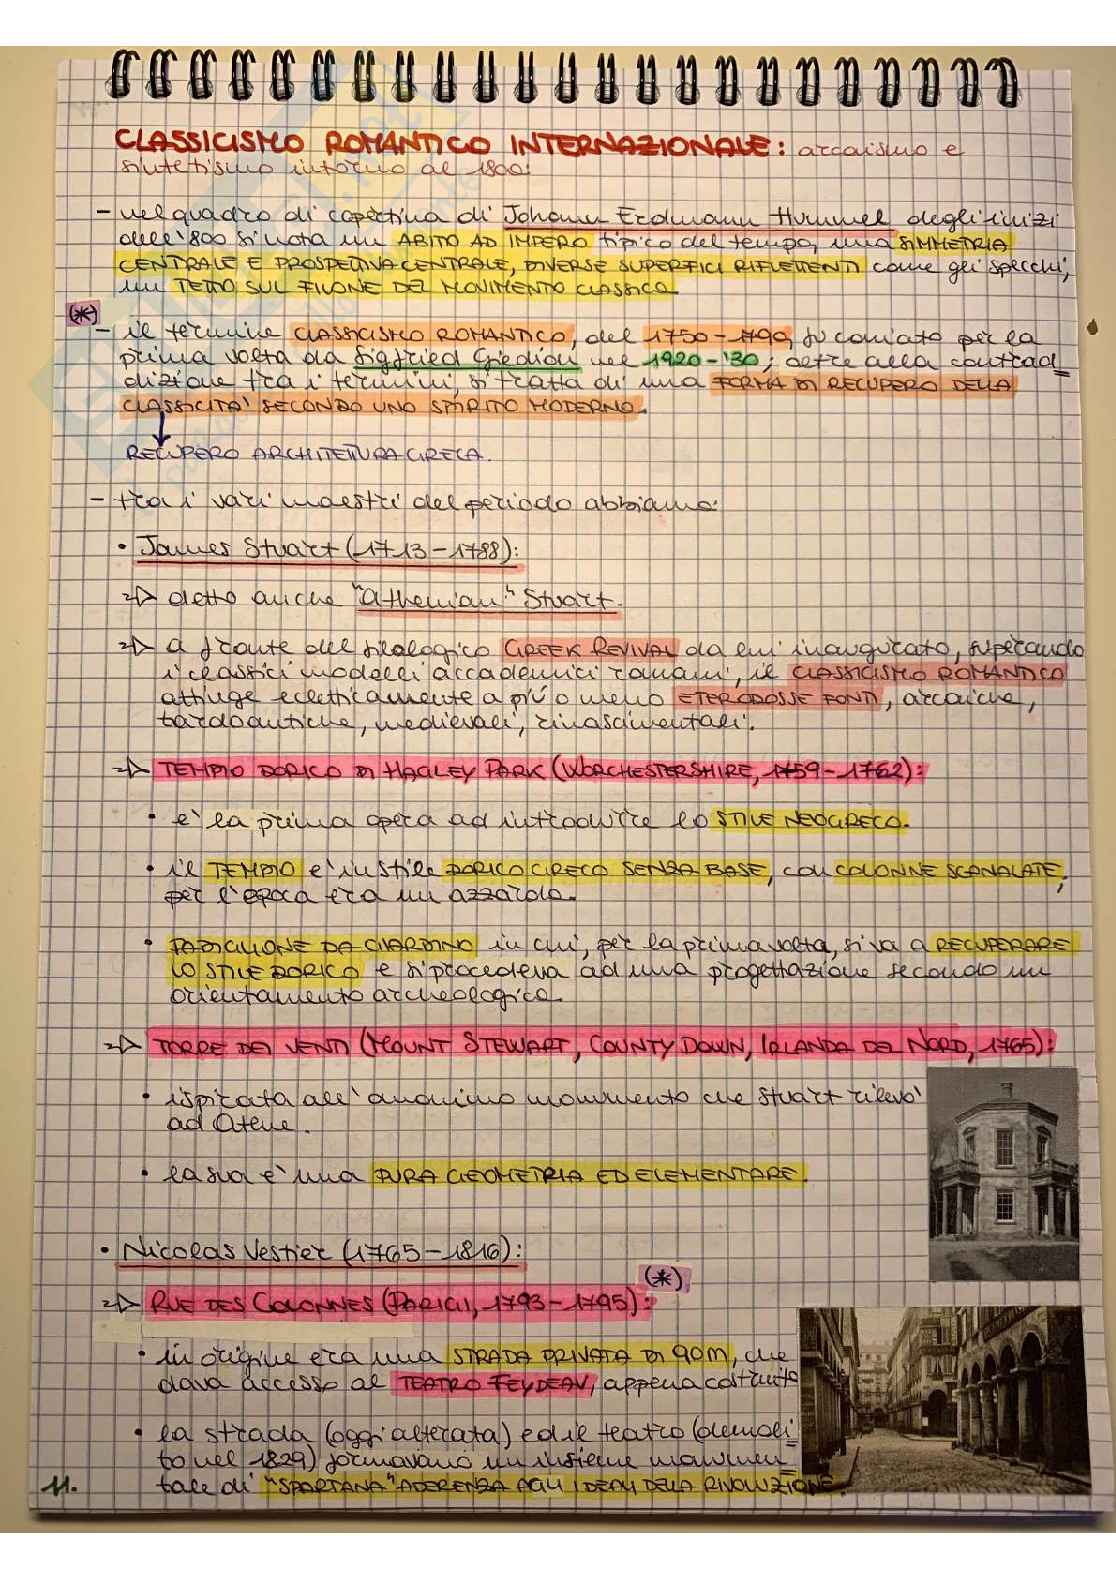 CLASSICISMO ROMANTICO INTERNAZIONALE: arcaismo e
sintetismo intorno al 1800:
- nel quadro di copertina di Johann Erdmann Hummel degli inizi
dell'800 si nota un ABITO AD IMPERO tipico del tempo, una SIMMETRIA
CENTRALE E PROSPETTIVA CENTRALE, DIVERSE SUPERFICI RIFLETTENTI come gli specchi,
un TETTO SUL FILONE DEL MOVIMENTO CLASSICO.
(*)
- il termine CLASSICISMO ROMANTICO, del 1750-1790, fu coniato per la
prima volta da Sigfried Giedion nel 1920-'30; oltre alla contrad
dizione tra i termini, si tratta di una FORMA DI RECUPERO DELLA
CLASSICITA' SECONDO UNO SPIRITO MODERNO.
RECUPERO ARCHITETTURA GRECA.
- tra i vari maestri del periodo abbiamo:
• James Stuart (1713-1788):
detto anche "Athenian" Stuart.
a fronte del filologico GREEK REVIVAL da lui inaugurato, superando
i classici modelli accademici romani, il CLASSICISMO ROMANTICO
attinge ecletticamente a più o meno ETERODOSSE FONTI, arcaiche,
tardoantiche, medievali, rinascimentali.
TEMPIO DORICO DI HAGLEY PARK (WORCHESTERSHIRE, 1759-1762):
• e' la prima opera ad introdurre lo STILE NEOGRECO.
• il TEMPIO e' in stile DORICO GRECO SENZA BASE, con COLONNE SCANALATE;
per l'epoca era un azzardo.
• PADIGLIONE DA GIARDINO in cui, per la prima volta, si va a RECUPERARE
LO STILE DORICO e si procedeva ad una progettazione secondo un
orientamento archeologico.
TORRE DEI VENTI (MOUNT STEWART, COUNTY DOWN, IRLANDA DEL NORD, 1765):
• ispirata all'anonimo monumento che Stuart rilevo'
ad Atene.
• la sua e' una PURA GEOMETRIA ED ELEMENTARE.
• Nicolas Vestier (1765-1816):
(*)
RUE DES COLONNES (PARIGI, 1793-1795):
• in origine era una STRADA PRIVATA DI 90M, che
dava accesso al TEATRO FEYDEAU, appena costruito
• la strada (oggi alterata) ed il teatro (demoli
to nel 1829) formavano un insieme monumen
tale di "SPARTANA" ADERENZA AGLI IDEALI DELLA RIVOLUZIONE.
11.